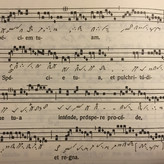 ci- em tu- am,
Spé- ci- e tu- a, et pulchri- tú- di-
ne tu- a inténde, próspere procé- de,
et regna.